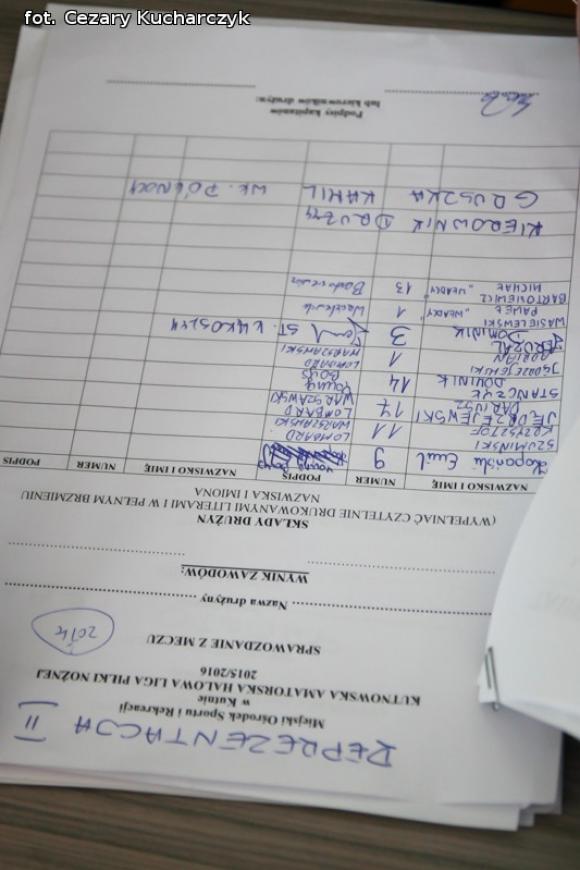 fot. Cezary Kucharczyk
REPREZENTACJA II
Miejski Ośrodek Sportu i Rekreacji
w Kutnie
KUTNOWSKA AMATORSKA HALOWA LIGA PIŁKI NOŻNEJ
2015/2016
SPRAWOZDANIE Z MECZU
Nazwa drużyny
WYNIK ZAWODÓW:
SKŁADY DRUŻYN
(WYPEŁNIAĆ CZYTELNIE DRUKOWANYMI LITERAMI W PEŁNYM BRZMIENIU
NAZWISKA I IMIONA
NAZWISKO I IMIĘ NUMER PODPIS NAZWISKO I IMIĘ NUMER PODPIS
Emil 9
SZUMIŃSKI KRZYSZTOF 11 LOMBARD WARSZAWSKI
JĘDRZEJEWSKI DARIUSZ 17 LOMBARD WARSZAWSKI
STAŃCZYK DOMINIK 14 Young Boys
ADRIAN 1 LOMBARD WARSZAWSKI
DOMINIK 3
WASIELEWSKI PAWEŁ 1
BARTOSIEWICZ MICHAŁ 13
KIEROWNIK DRUŻYNY
GRUSZKA KAMIL
Podpisy kapitanów
lub kierowników drużyn: